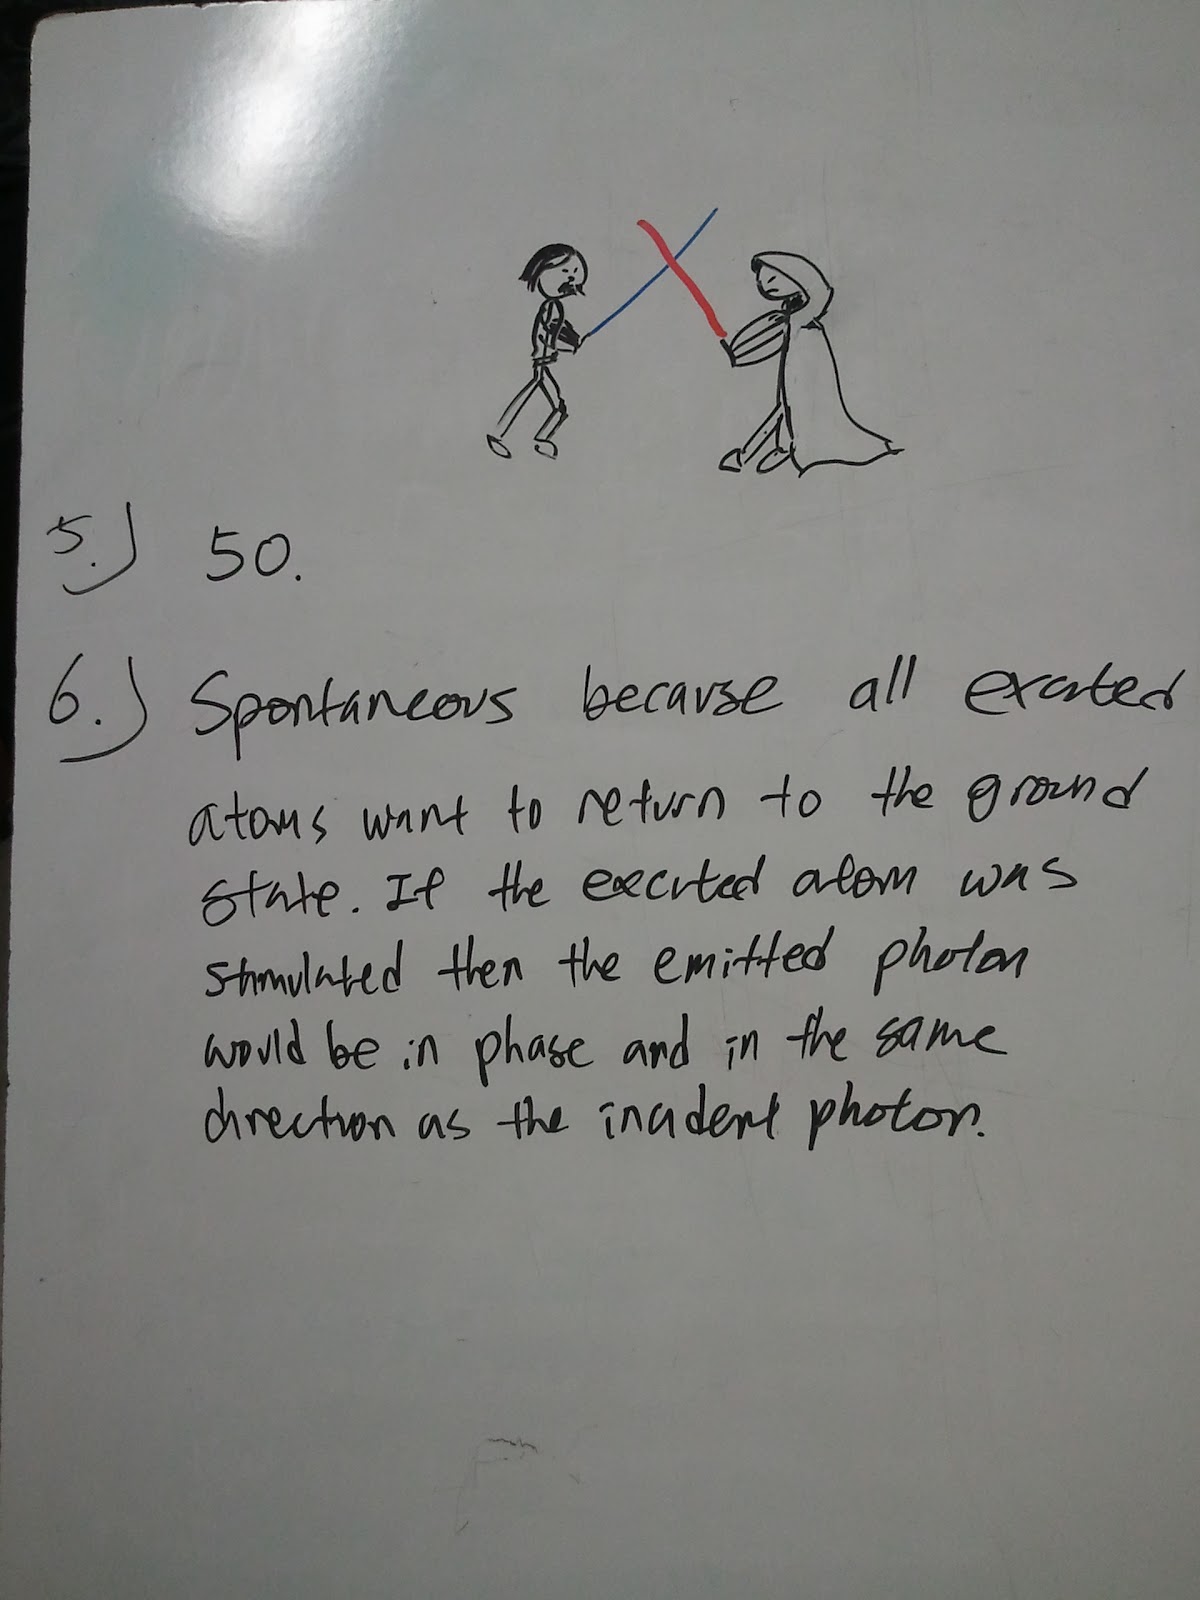 5.) 50.
6.) Spontaneous because all excited
atoms want to return to the ground
state. If the excited atom was
stimulated then the emitted photon
would be in phase and in the same
direction as the incident photon.